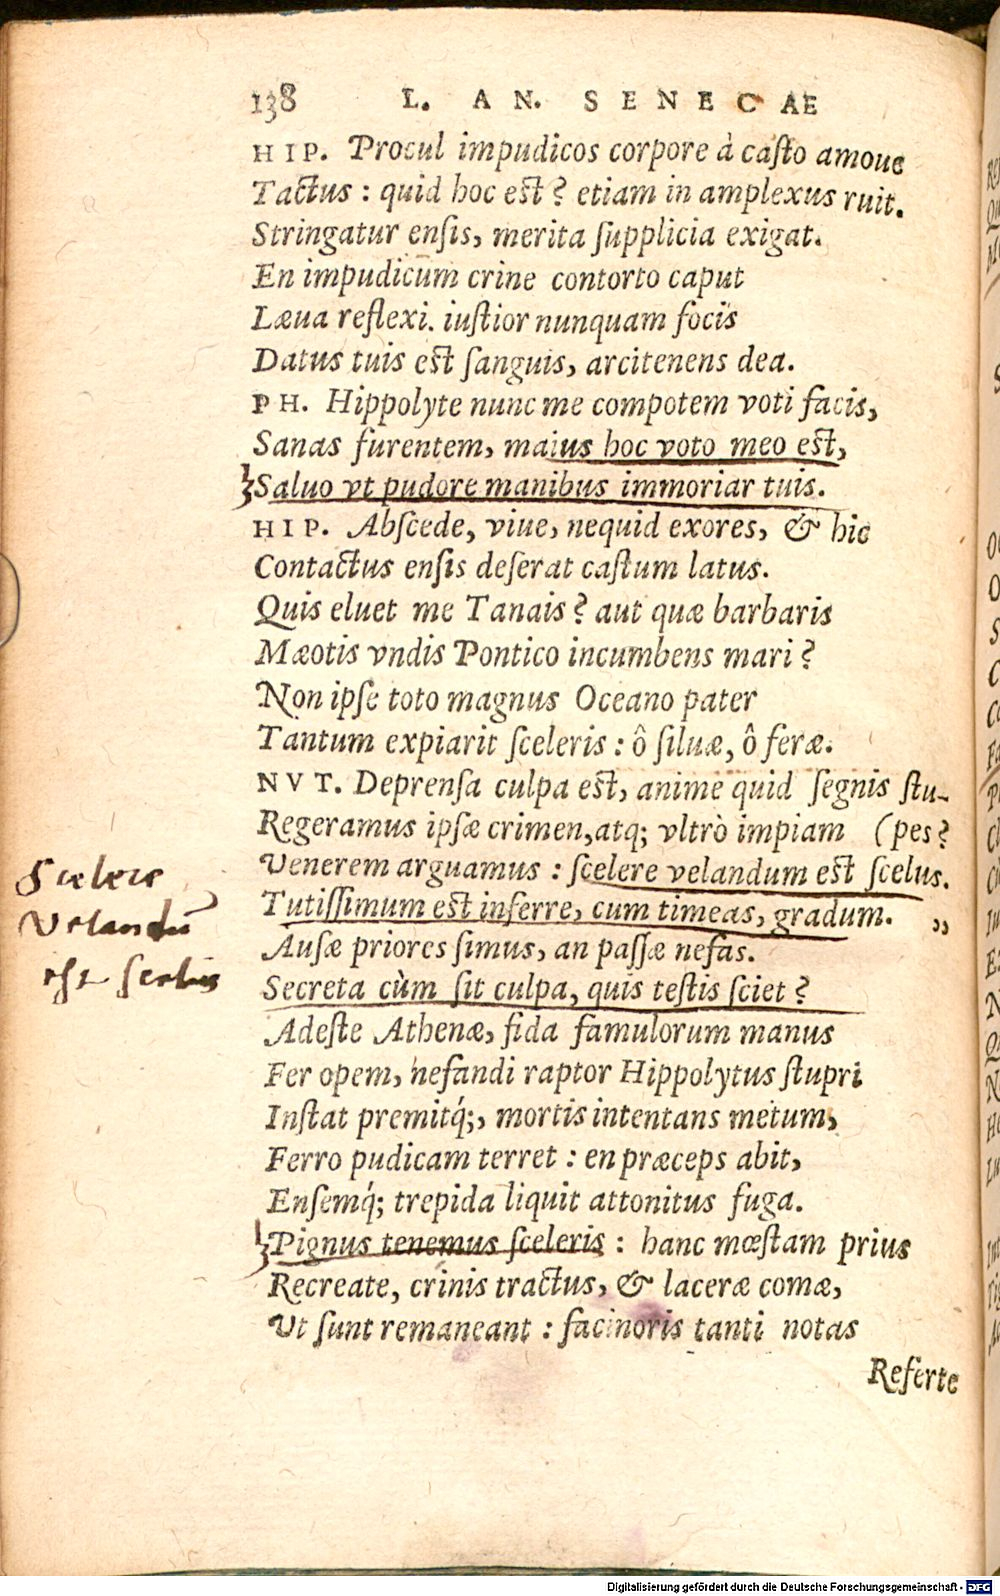 138 L. AN. SENECAE
HIP. Procul impudicos corpore à casto amoue
Tactus : quid hoc est? etiam in amplexus ruit.
Stringatur ensis, merita supplicia exigat.
En impudicum crine contorto caput
Læua reflexi. iustior nunquam focis
Datus tuis est sanguis, arcitenens dea.
PH. Hippolyte nunc me compotem voti facis,
Sanas furentem, maius hoc voto meo est,
Saluo vt pudore manibus immoriar tuis.
HIP. Abscede, viue, nequid exores, & hic
Contactus ensis deserat castum latus.
Quis eluet me Tanais? aut quæ barbaris
Mæotis vndis Pontico incumbens mari?
Non ipse toto magnus Oceano pater
Tantum expiarit sceleris : ô siluæ, ô feræ.
NVT. Deprensa culpa est, anime quid segnis stu-
Regeramus ipsæ crimen, atq; vltrò impiam (pes?
Venerem arguamus : scelere velandum est scelus.
Tutissimum est inferre, cum timeas, gradum. ,,
Ausæ priores simus, an passæ nefas.
Secreta cùm sit culpa, quis testis sciet?
Adeste Athenæ, fida famulorum manus
Fer opem, nefandi raptor Hippolytus stupri
Instat premitq́;, mortis intentans metum,
Ferro pudicam terret : en præceps abit,
Ensemq́; trepida liquit attonitus fuga.
Pignus tenemus sceleris : hanc mœstam prius
Recreate, crinis tractus, & laceræ comæ,
Vt sunt remaneant : facinoris tanti notas
Referte
Scelere
Velandū
est scelus
Digitalisierung gefördert durch die Deutsche Forschungsgemeinschaft - DFG